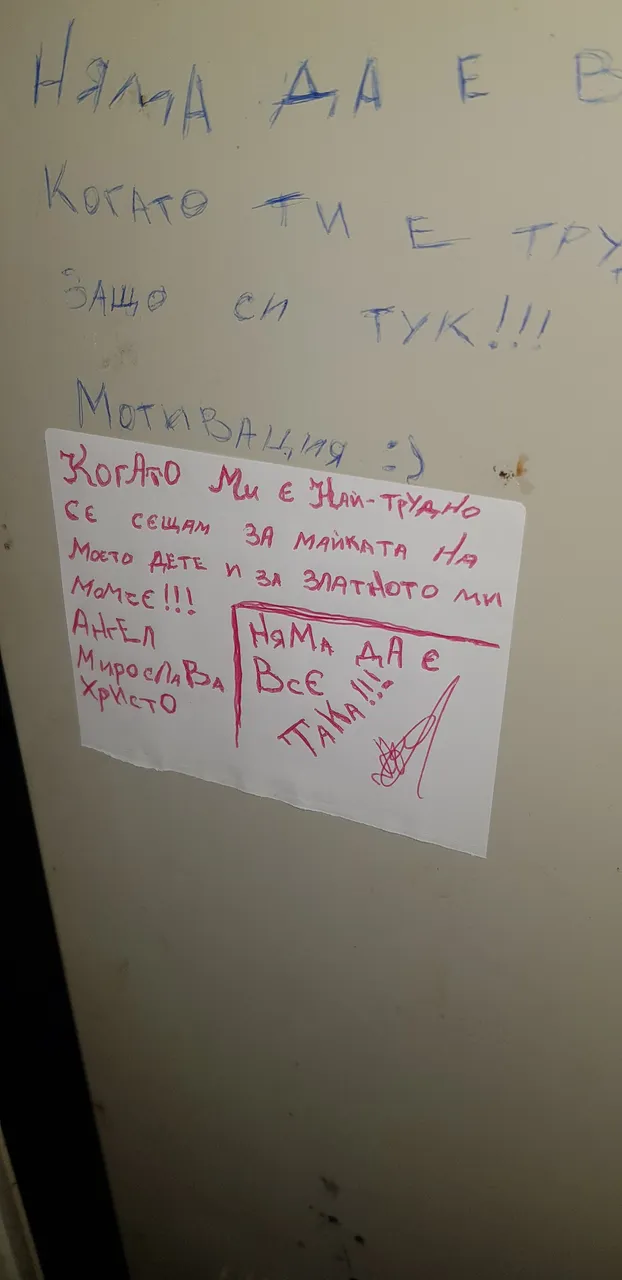 НЯМА ДА Е В
КОГАТО ТИ Е ТРУ
ЗАЩО СИ ТУК!!!
МОТИВАЦИЯ :)
КОГАТО МИ Е НАЙ-ТРУДНО
СЕ СЕЩАМ ЗА МАЙКАТА НА
МОЕТО ДЕТЕ И ЗА ЗЛАТНОТО МИ
МОМЧЕ!!!
АНГЕЛ
МИРОСЛАВА
ХРИСТО
НЯМА ДА Е
ВСЕ
ТАКА!!!